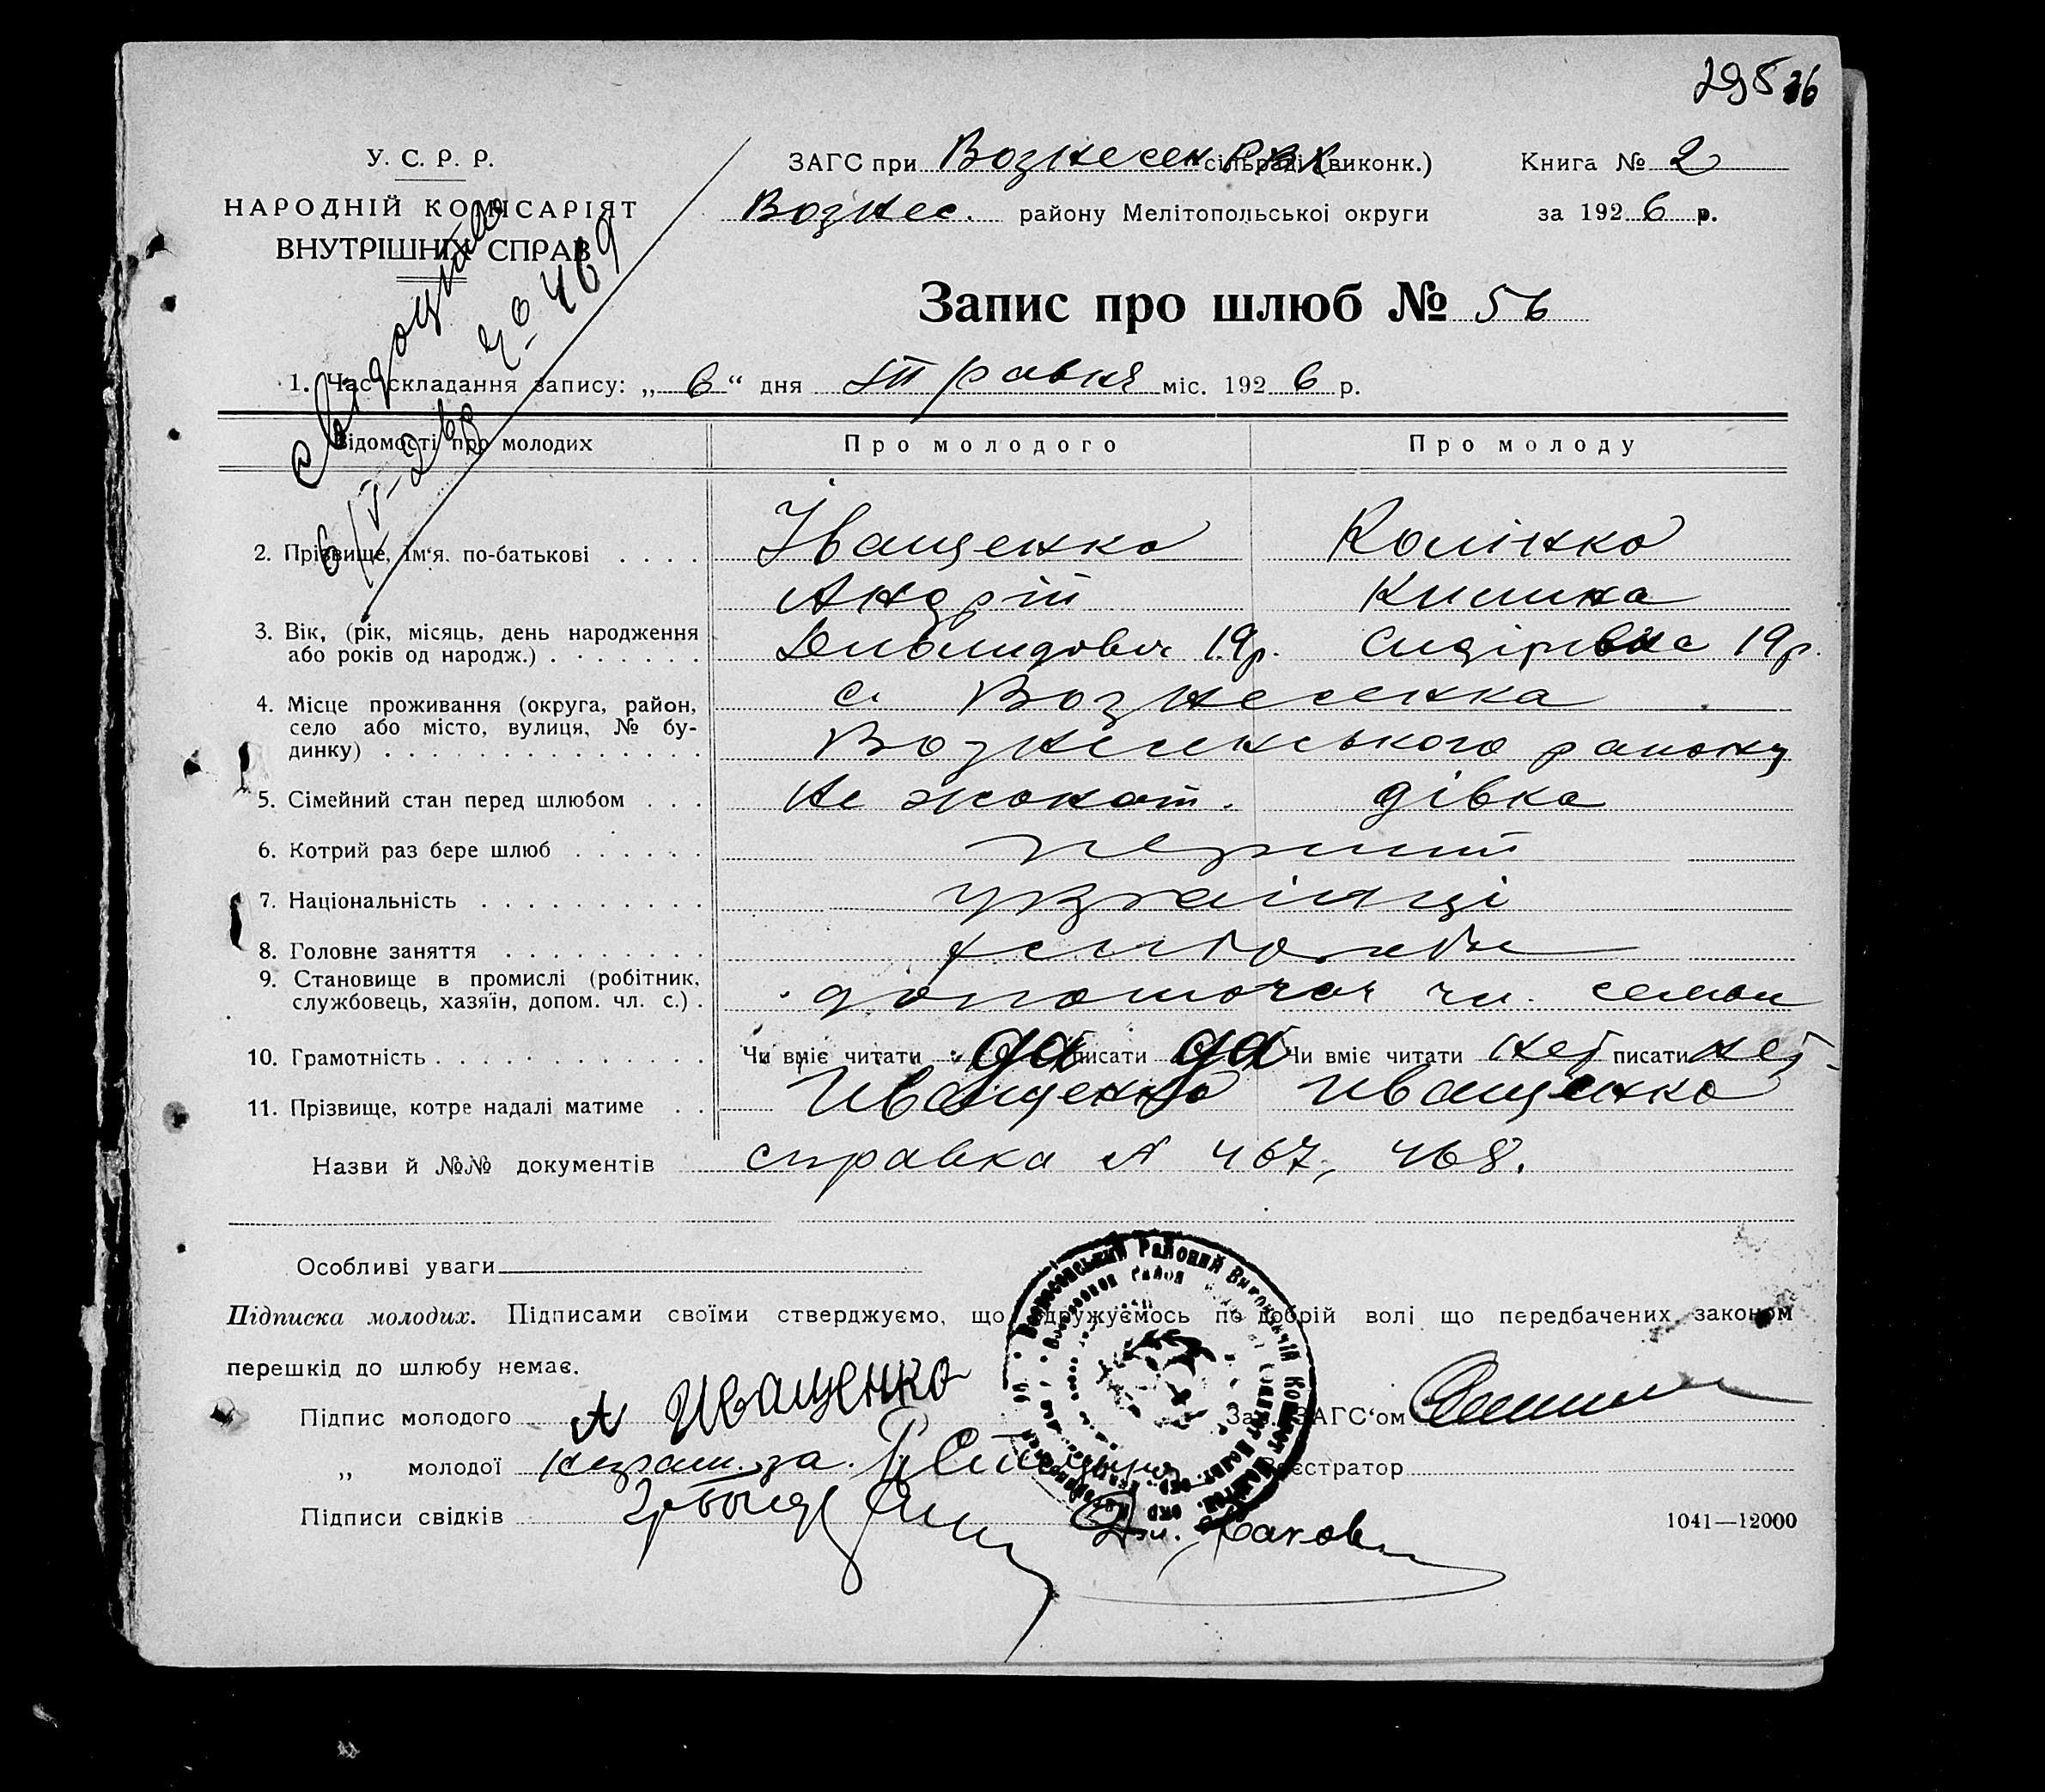 295 26
У. С. Р. Р.
НАРОДНІЙ КОМІСАРІЯТ
ВНУТРІШНІХ СПРАВ
ЗАГС при Вознесен РВК сільраді (виконк.)
Книга № 2
Вознес. району Мелітопольської округи
за 1926 р.
№ 469
6/V-26
Запис про шлюб № 56
1. Час складання запису: „6“ дня травня міс. 1926 р.
Відомості про молодих
Про молодого
Про молоду
2. Прізвище, Ім'я. по-батькові . . . .
Іващенко
Андрій
19р.
Килина
Сидірівна 19р.
3. Вік, (рік, місяць, день народження
або років од народж.) . . . . . . .
4. Місце проживання (округа, район,
село або місто, вулиця, № бу-
динку) . . . . . . . . . . . . . .
с. Вознесенка
Вознесенського району
5. Сімейний стан перед шлюбом . . .
не жонат.
дівка
6. Котрий раз бере шлюб . . . . . .
перший
7. Національність . . . . . . . . . .
українці
8. Головне заняття . . . . . . . . .
9. Становище в промислі (робітник,
службовець, хазяїн, допом. чл. с.) .
чл. семьи
10. Грамотність . . . . . . . . . . . .
Чи вміє читати да писати да
Чи вміє читати нет писати нет
11. Прізвище, котре надалі матиме . .
Иващенко
Иващенко
Назви й №№ документів
справка № 467, 468.
Особливі уваги
Підписка молодих. Підписами своїми стверджуємо, що одружуємось по добрій волі що передбачених законом
перешкід до шлюбу немає.
Підпис молодого
А Иващенко
Зав. ЗАГС'ом
„ молодої
неграм. за.
Реєстратор
Підписи свідків
1041—12000
Вознесенський Районий Виконавчий Комітет